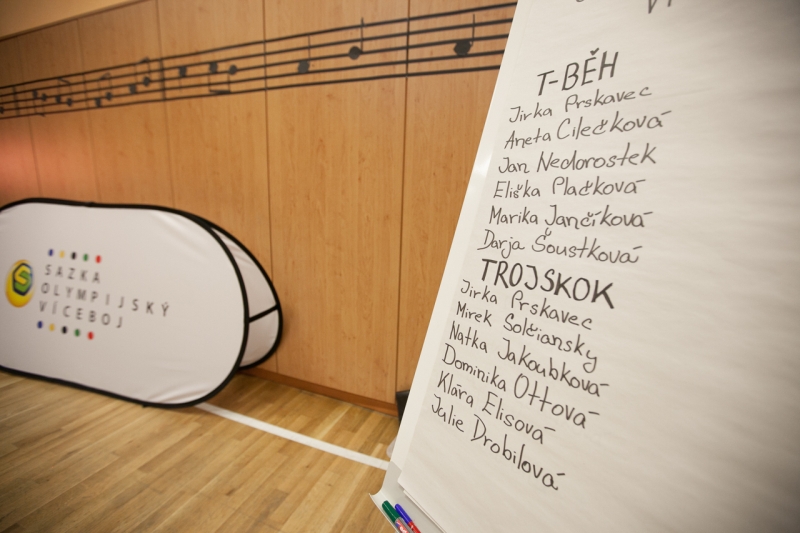 SAZKA
OLYMPIJSKÝ
VÍCEBOJ
T-BĚH
Jirka Prskavec
Aneta Cilečková
Jan Nedorostek
Eliška Plačková
Marika Jančíková
Darja Šoustková
TROJSKOK
Jirka Prskavec
Mirek Solčiansky
Natka Jakoubková
Dominika Ottová
Klára Elisová
Julie Drobilová